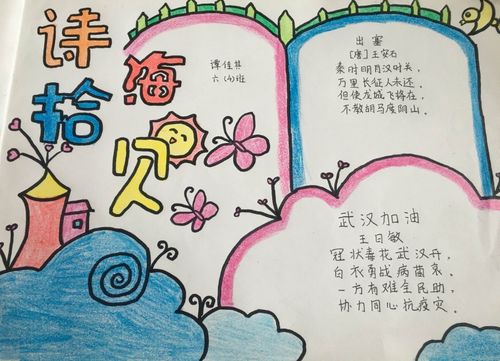 诗海
拾贝
谭佳其
六(4)班
出塞
[唐]王安石
秦时明月汉时关,
万里长征人未还。
但使龙城飞将在,
不教胡马度阴山。
武汉加油
王日敏
冠状毒花武汉开,
白衣勇战病菌来。
一方有难全民助,
协力同心抗疫灾。